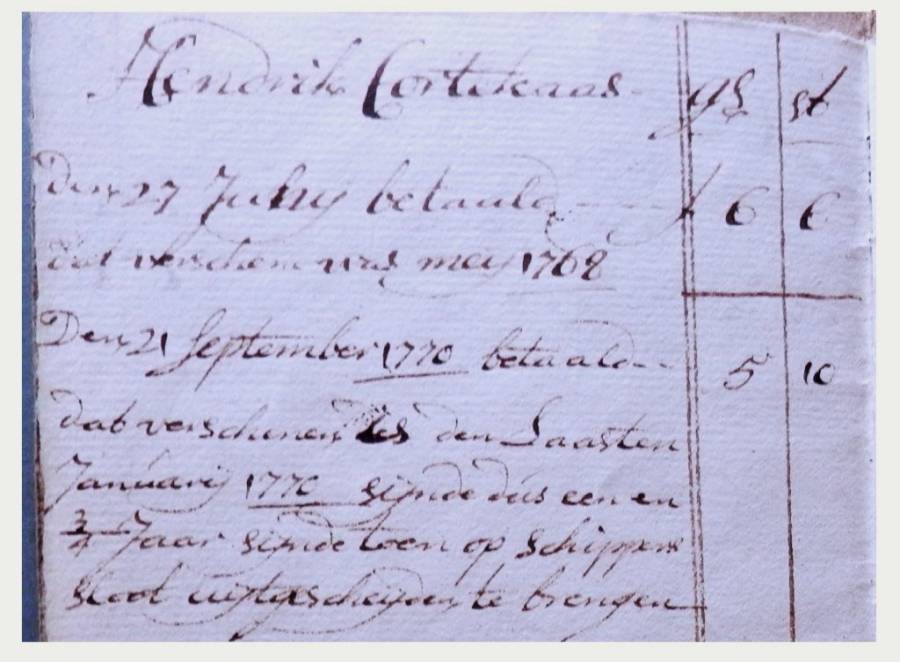 Hendrik Cortekaas gl st
Den 27 July betaald f 6 6
dat verschenen was mey 1768
Den 21 September 1770 betaald 5 10
dat verschenen is den Laasten
January 1770 sijnde dus een en
3/4 Jaar sijnde toen op schippers
sloot uijtgescheyden te brengen